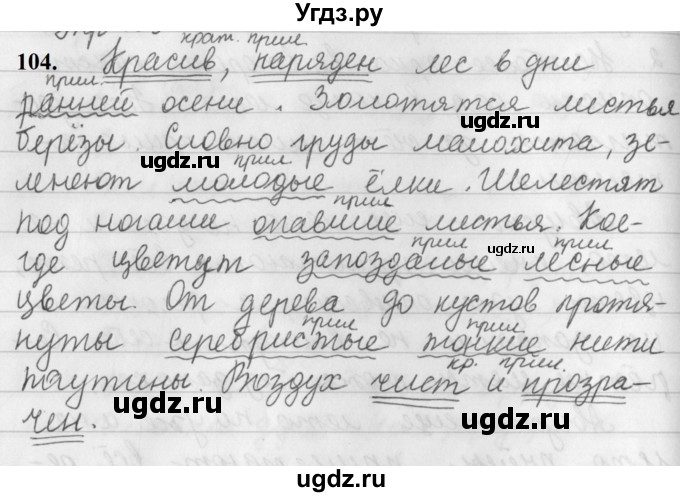 Угдз.ру
крат. прил.
104. Красив, наряден лес в дни
прил.
ранней осени. Золотятся листья
берёзы. Словно груды малахита, зе-
прил
ленеют молодые ёлки. Шелестят
прил
под ногами опавшие листья. Кое-
прил прил
где цветут запоздалые лесные
цветы. От дерева до кустов протя-
прил прил
нуты серебристые тонкие нити
кр. прил.
паутины. Воздух чист и прозра-
чен.
ugdz.ru
ugdz.ru
ugdz.ru
ugdz.ru
ugdz.ru
ugdz.ru
ugdz.ru